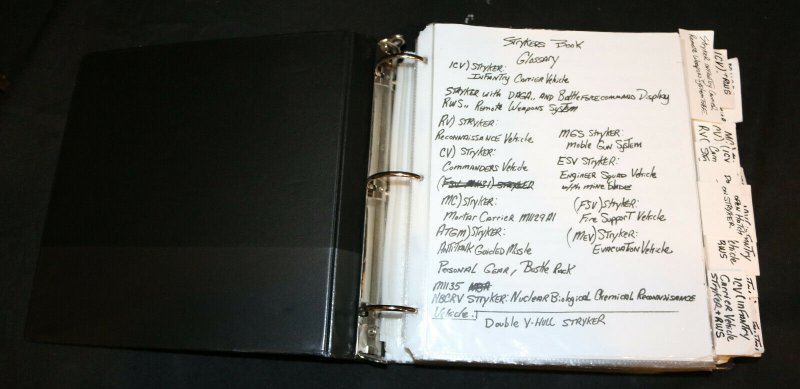 Strykers Book
Glossary
ICV) Stryker:
Infantry Carrier Vehicle
Stryker with DAGA, and Battleforcecommand Display
RWS,, Remote Weapons System
RV) Stryker:
Reconnaissance Vehicle
CV) Stryker:
Commanders Vehicle
MC) Stryker:
Mortar Carrier M1129 A1
ATGM) Stryker:
Antitank Guided Missle
MGS Stryker:
Moble Gun System
ESV Stryker:
Engineer Squad Vehicle
with mine blades
(FSV) Stryker:
Fire Support Vehicle
(MEV) Stryker:
Evacuation Vehicle
Personal Gear, Bustle Rack
M1135
NBCRV Stryker: Nuclear Biological Chemical Reconnaissance
Vehicle.
Double V-Hull Stryker
ICV/+RWS
RV
Vehicle
RWS
ICV (Infantry
Carrier Vehicle
Stryker + RWS